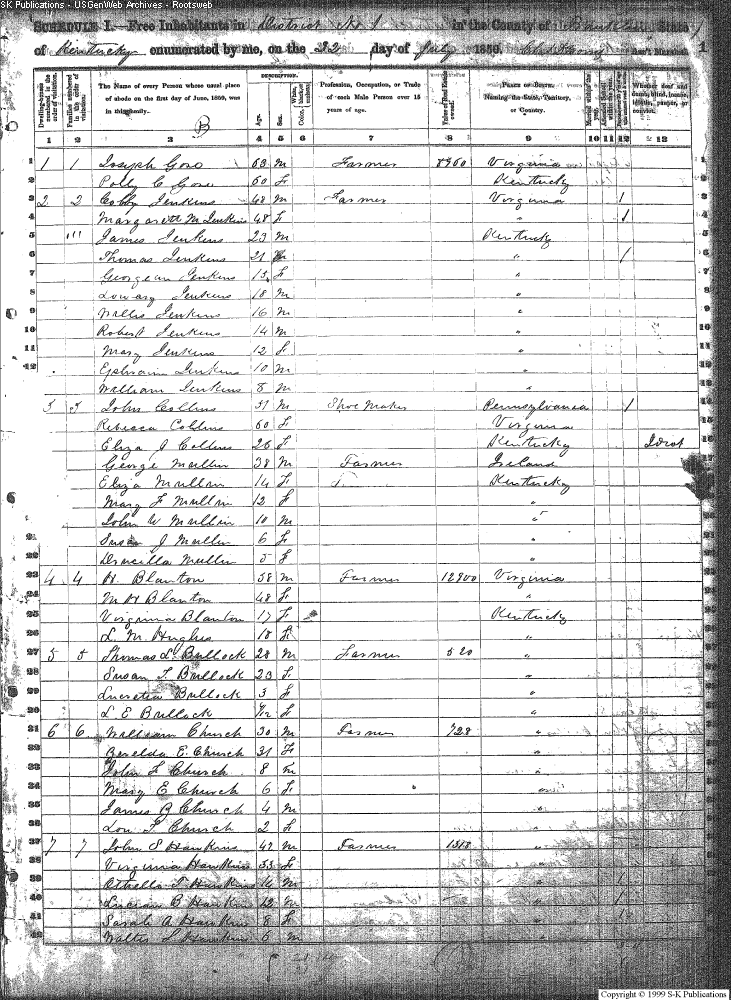 SK Publications - USGenWeb Archives - Rootsweb
SCHEDULE I.—Free Inhabitants in District No 1 in the County of State
of Kentucky enumerated by me, on the 22 day of July 1850. Ass't Marshal
1
DESCRIPTION.
Dwelling-houses numbered in the order of visitation.
Families numbered in the order of visitation.
The Name of every Person whose usual place of abode on the first day of June, 1850, was in this family.
Age.
Sex.
Profession, Occupation, or Trade of each Male Person over 15 years of age.
Value of Real Estate owned.
PLACE OF BIRTH. Naming the State, Territory, or Country.
Whether deaf and dumb, blind, insane, idiotic, pauper, or convict.
1 2 3 4 5 6 7 8 9 10 11 12 13
1 1 1 Joseph Gore 63 M Farmer Virginia
2 Polly C Gore 60 F Kentucky
3 2 2 Jenkins 48 M Farmer Virginia 1
4 Margarett M Jenkins 48 F " 1
5 James Jenkins 23 M Kentucky
6 Thomas Jenkins 21 " 1
7 Georgean Jenkins 13 F "
8 Jenkins 18 M "
9 Willis Jenkins 16 M "
10 Robert Jenkins 14 M "
11 Mary Jenkins 12 F "
12 Ephraim Jenkins 10 M "
William Jenkins 8 M "
3 3 John Collins 51 M Shoe Maker Pennsylvania 1
Rebecca Collins 60 F Virginia
Eliza J Collins 26 F Kentucky Idiot
George Mullin 38 M Farmer Ireland
Eliza Mullin 14 F Kentucky
Mary F Mullin 12 F "
John W Mullin 10 M "
21 Susan J Mullin 6 F "
22 Drucilla Mullin 5 F "
23 4 4 H. Blanton 58 M Farmer Virginia
24 M H Blanton 48 F "
25 Virginia Blanton 17 F Kentucky
26 L. M. Hughes 18 F "
27 5 5 Thomas L. Bullock 28 M Farmer 520 "
28 Susan T. Bullock 23 F "
29 Lucretia Bullock 3 F "
30 L E Bullock F "
31 6 6 William Church 30 M Farmer 728 "
32 E. Church 31 F "
33 John F Church 8 M "
34 Mary E Church 6 F "
35 James B Church 4 M "
36 Lou F Church 2 F "
37 7 7 John S Hawkins 42 M Farmer "
38 Virginia Hawkins 33 F "
39 Othello T Hawkins 14 M " 1
40 Lucian B Hawkins 12 M " 1
41 Sarah A Hawkins 8 F " 1
42 Walter Hawkins 6 M "
Copyright © 1999 S-K Publications